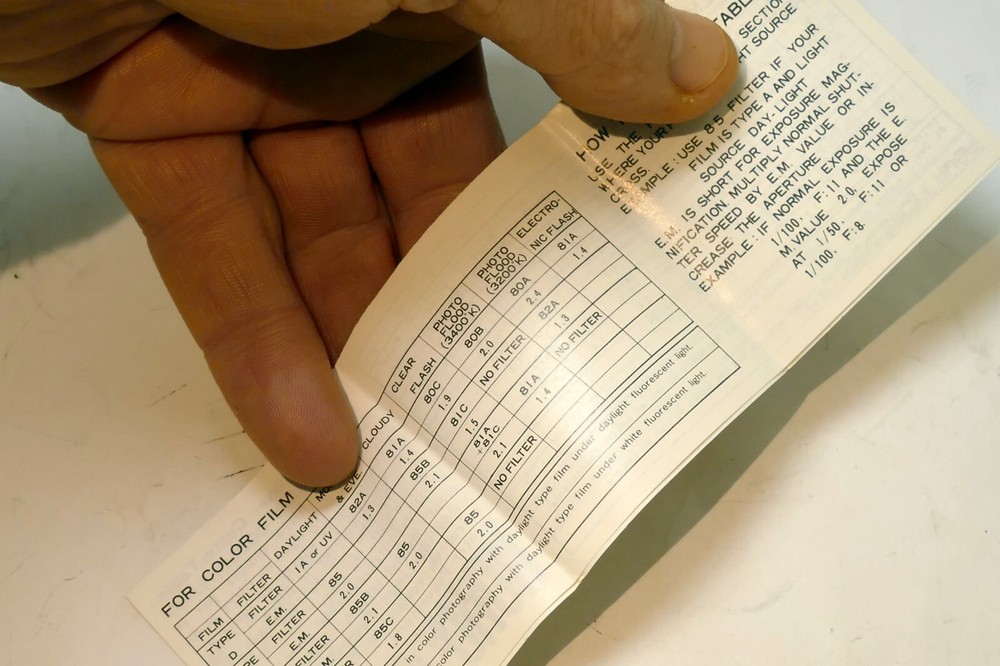 FOR COLOR FILM
FILM TYPE FILTER DAYLIGHT & EVE. CLOUDY CLEAR FLASH PHOTO FLOOD (3400°K) PHOTO FLOOD (3200°K) ELECTRO-NIC FLASH
D FILTER 1A or UV 82A 81A 80C 80B 80A 81A
E.M. 1.3 1.4 1.9 2.0 2.4 1.4
FILTER 85 85B 81C NO FILTER 82A
E.M. 2.0 2.1 1.5 1.3
FILTER 85B 85 81A +81C 81A NO FILTER
E.M. 2.1 2.0 2.1 1.4
FILTER 85C 85 NO FILTER
1.8 2.0
in color photography with daylight type film under daylight fluorescent light.
color photography with daylight type film under white fluorescent light.
HOW
USE THE SECTION
WHERE YOUR LIGHT SOURCE
CROSS.
EXAMPLE: USE 85 FILTER IF YOUR
FILM IS TYPE A AND LIGHT
SOURCE DAY-LIGHT
E.M. IS SHORT FOR EXPOSURE MAG-
NIFICATION. MULTIPLY NORMAL SHUT-
TER SPEED BY E.M. VALUE OR IN-
CREASE THE APERTURE
EXAMPLE: IF NORMAL EXPOSURE IS
1/100. F:11 AND THE E.
M. VALUE 2.0, EXPOSE
AT 1/50. F:11 OR
1/100. F:8.